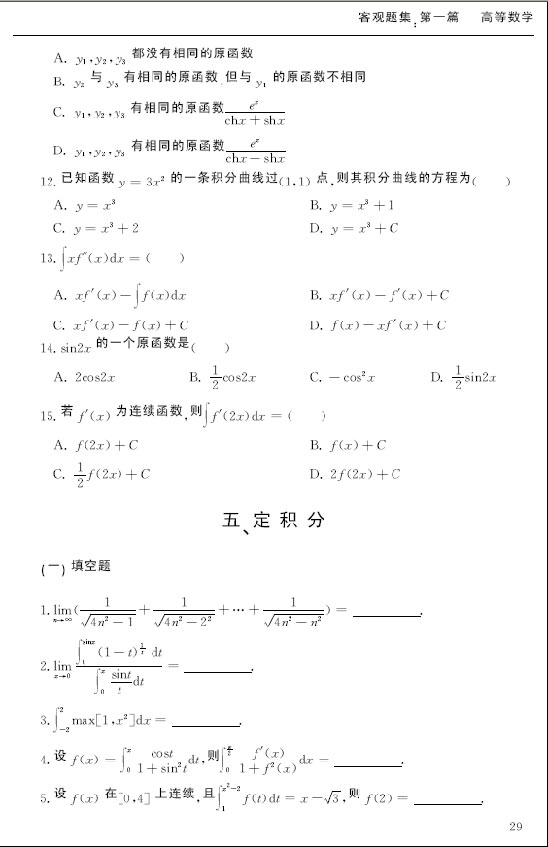 客观题集:第一篇 高等数学
A. y₁,y₂,y₃ 都没有相同的原函数
B. y₂ 与 y₃ 有相同的原函数,但与 y₁ 的原函数不相同
C. y₁,y₂,y₃ 有相同的原函数 eˣ/(chx+shx)
D. y₁,y₂,y₃ 有相同的原函数 eˣ/(chx−shx)
12. 已知函数 y = 3x² 的一条积分曲线过(1,1)点,则其积分曲线的方程为( )
A. y = x³ B. y = x³ + 1
C. y = x³ + 2 D. y = x³ + C
13. ∫xf″(x)dx = ( )
A. xf′(x) − ∫f(x)dx B. xf′(x) − f′(x) + C
C. xf′(x) − f(x) + C D. f(x) − xf′(x) + C
14. sin2x 的一个原函数是( )
A. 2cos2x B. 1/2 cos2x C. − cos²x D. 1/2 sin2x
15. 若 f′(x) 为连续函数,则∫f′(2x)dx = ( )
A. f(2x) + C B. f(x) + C
C. 1/2 f(2x) + C D. 2f(2x) + C
五、定积分
(一) 填空题
1. lim(n→∞) (1/√(4n² − 1) + 1/√(4n² − 2²) + ⋯ + 1/√(4n² − n²)) = ______.
2. lim(x→0) ∫ sinx (1 − t) dt / ∫₀ˣ sint/t dt = ______.
3. ∫₋₂² max[1,x²]dx = ______.
4. 设 f(x) = ∫₀ˣ cost/(1 + sin²t) dt,则∫₀^(π/2) f′(x)/(1 + f²(x)) dx = ______.
5. 设 f(x) 在[0,4]上连续,且∫₁^(x²−2) f(t)dt = x − √3,则 f(2) = ______.
29